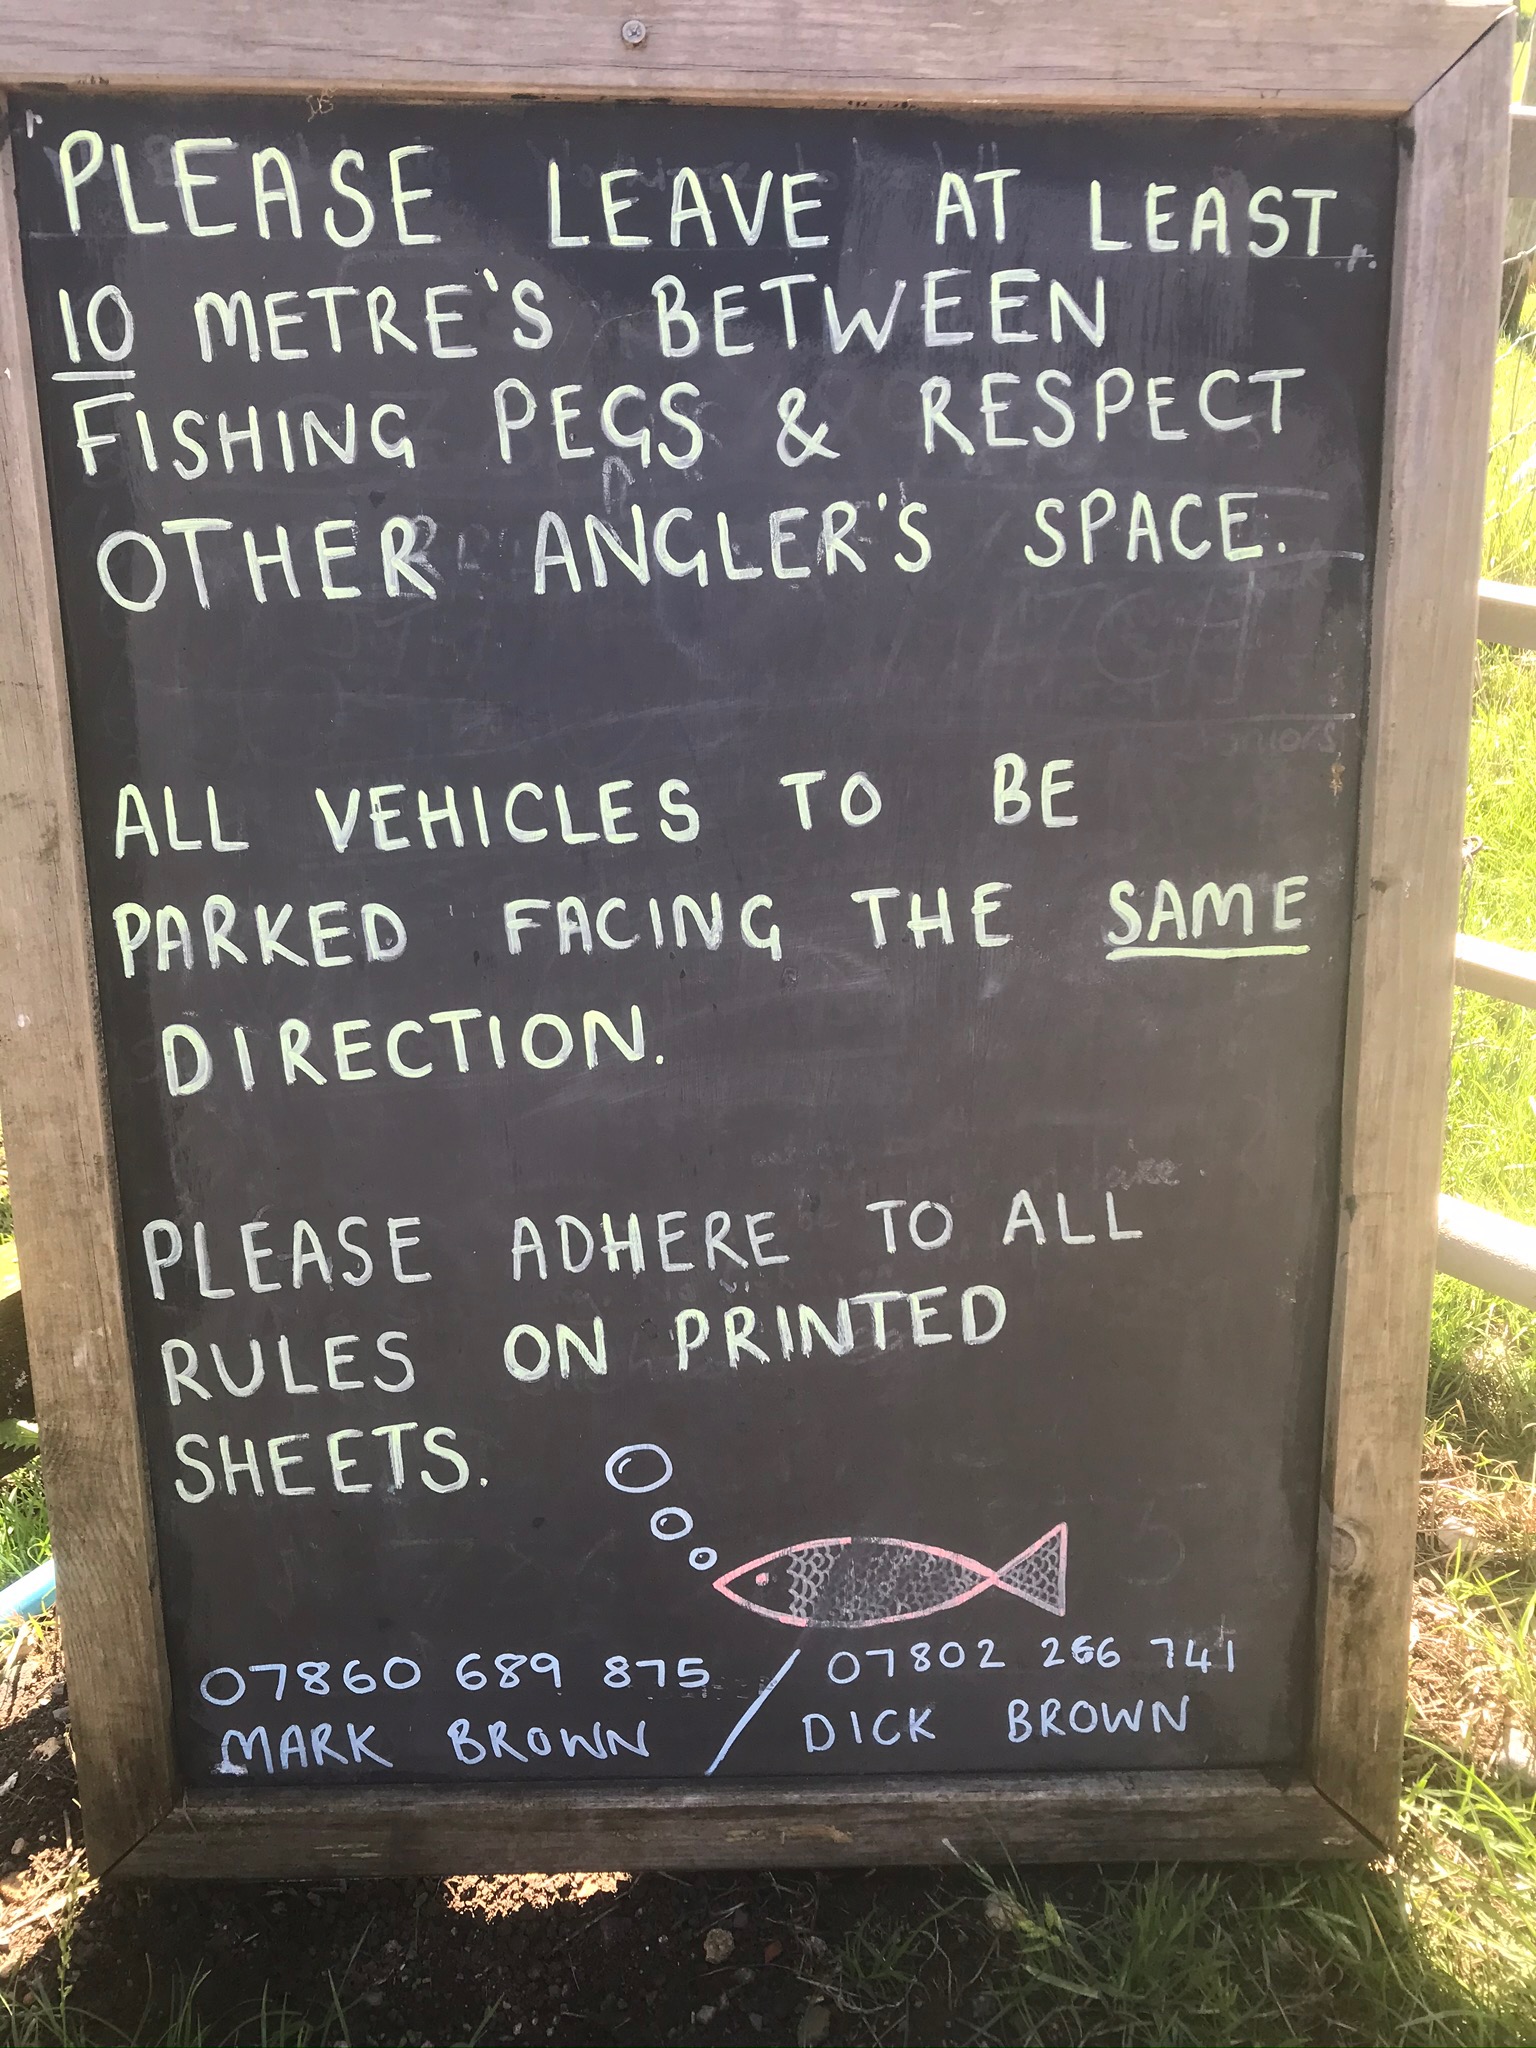 PLEASE LEAVE AT LEAST
10 METRE'S BETWEEN
FISHING PEGS & RESPECT
OTHER ANGLER'S SPACE.
ALL VEHICLES TO BE
PARKED FACING THE SAME
DIRECTION.
PLEASE ADHERE TO ALL
RULES ON PRINTED
SHEETS.
07860 689 875 / 07802 266 741
MARK BROWN / DICK BROWN